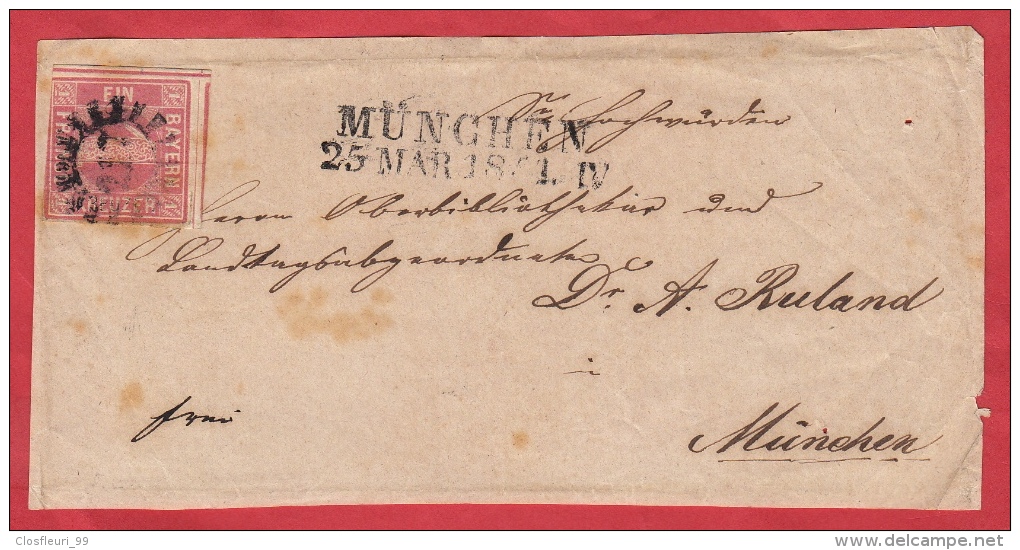 EIN
BAYERN
KREUZER
MÜNCHEN
25 MAR 18 1. IV
Sr. Hochwürden
Herrn Oberbibliothekar und
Landtagsabgeordneten
Dr. A. Ruland
in
München
frei
Closfleuri_99
delcampe.net